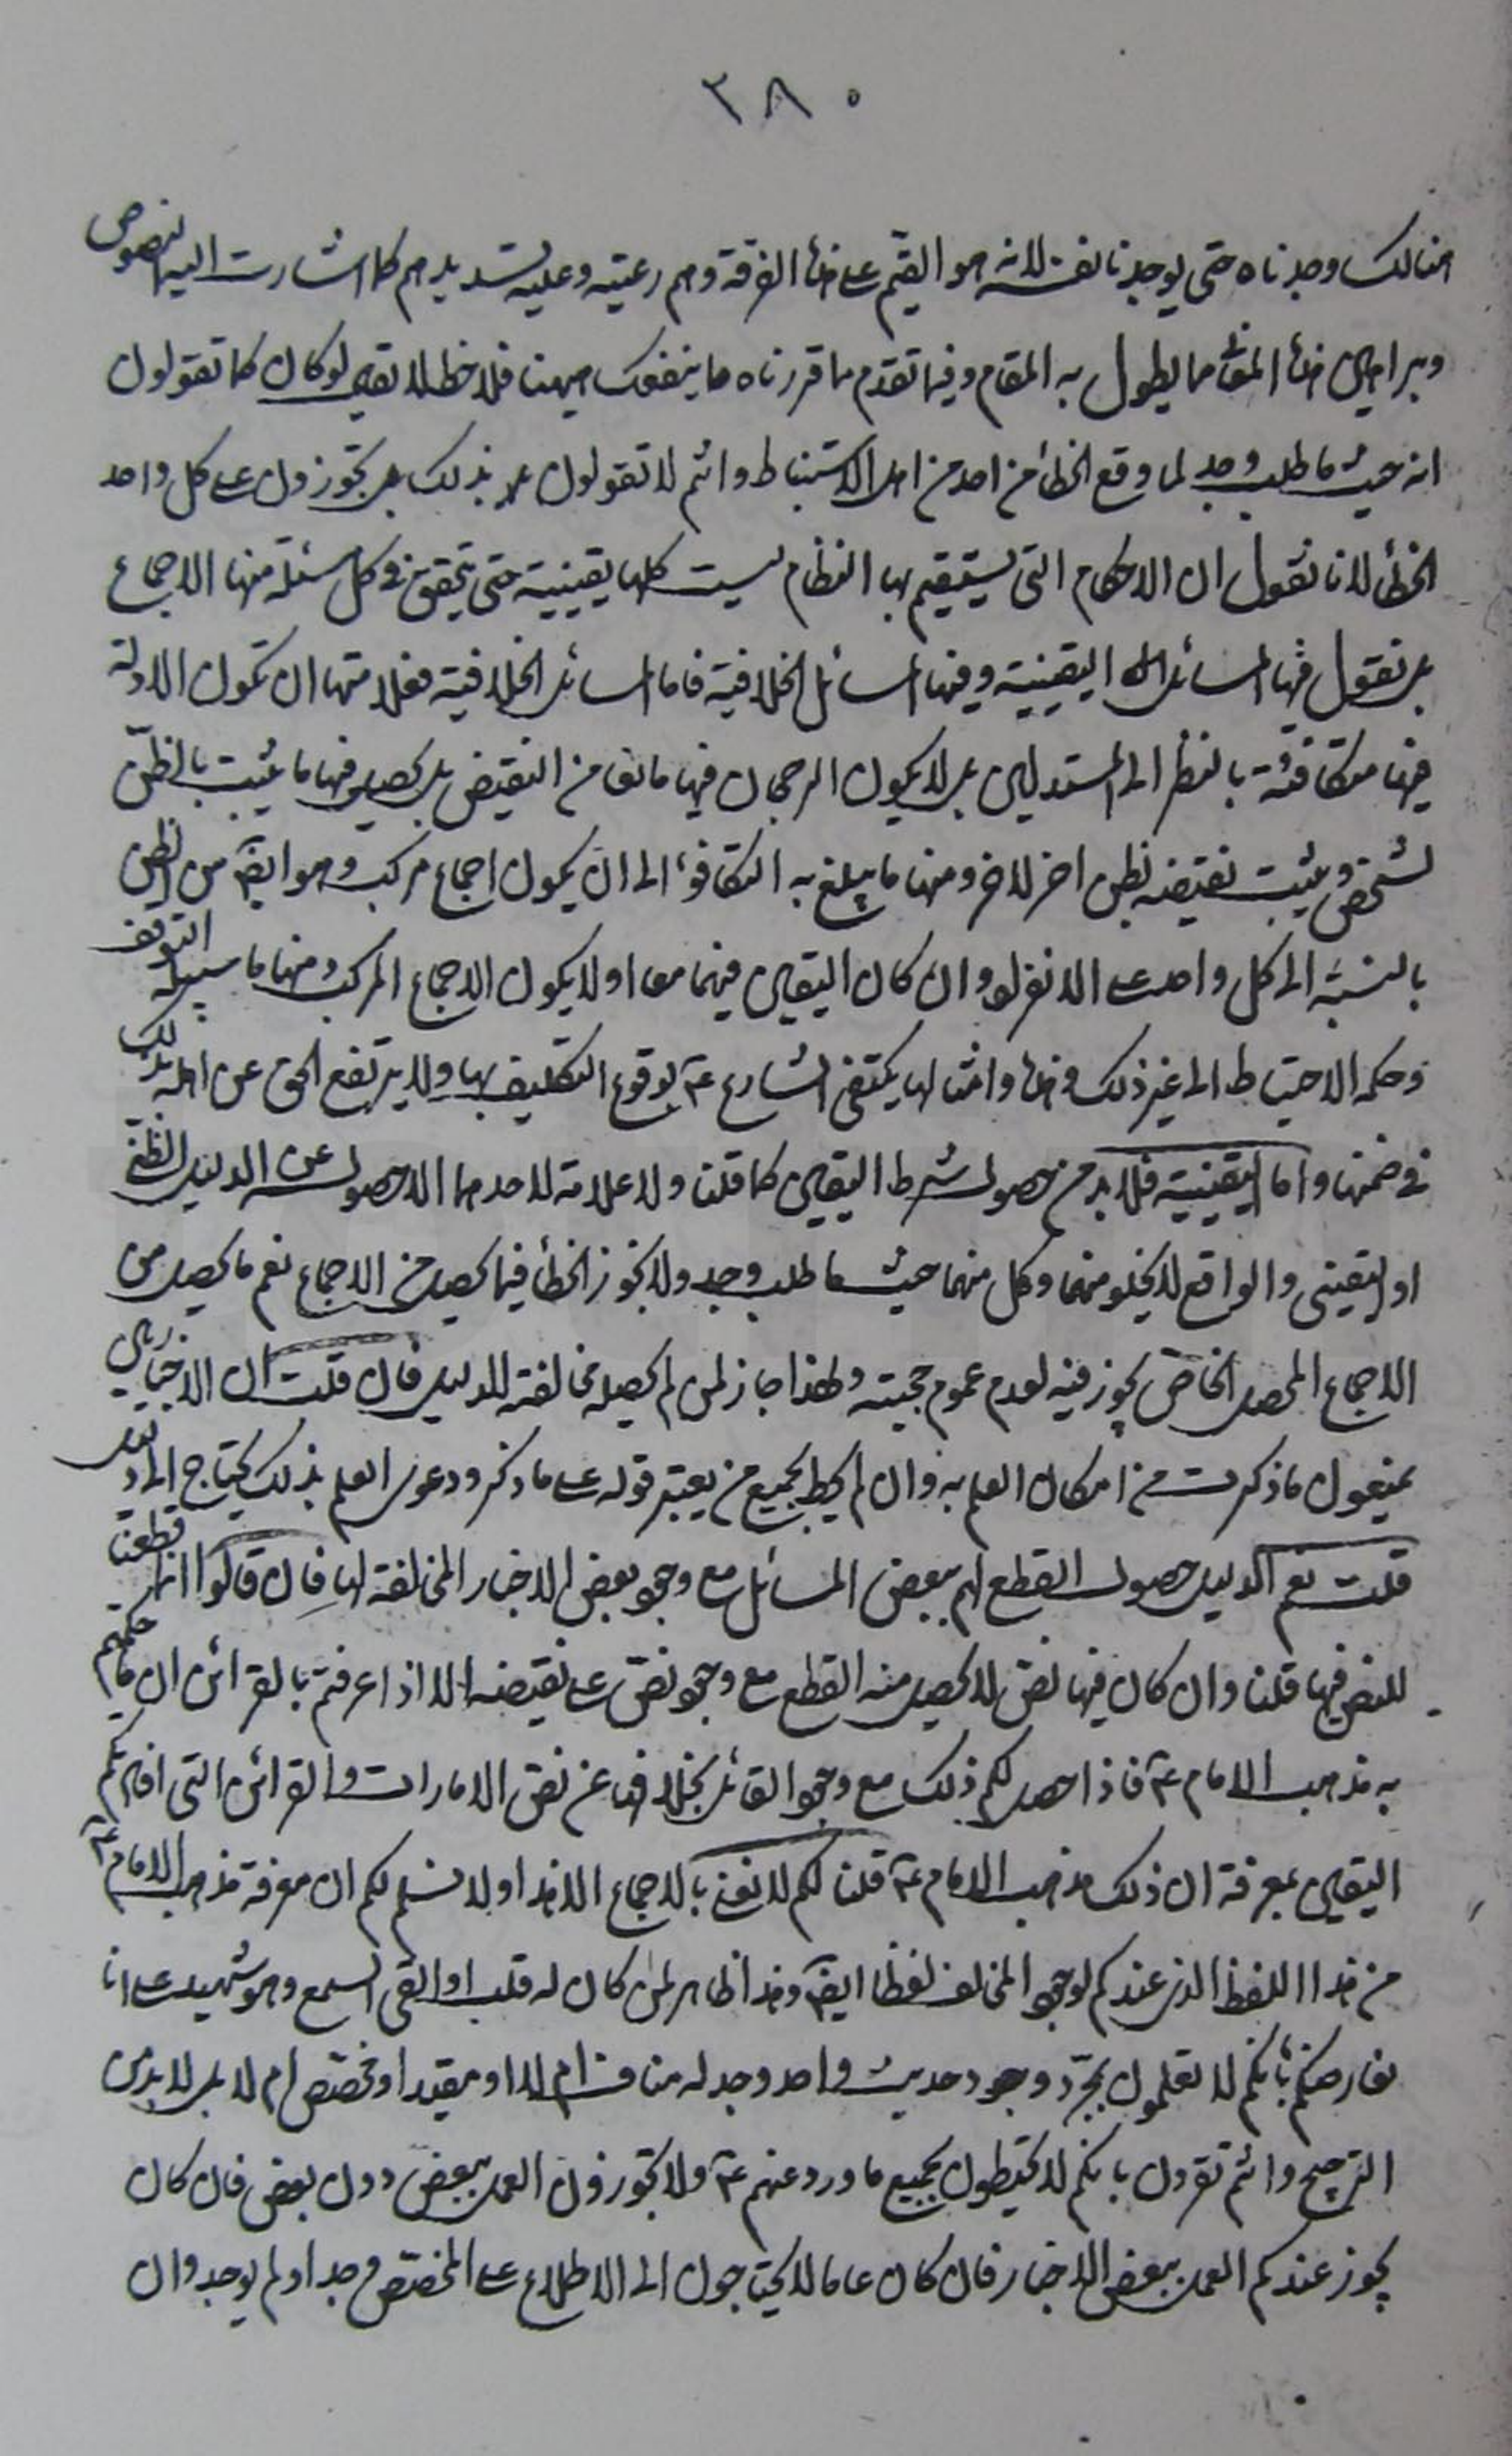 ٣٨٠
هنالك وجدناه حتى يوجدنا نفسه لانه هو القيم على هذه الفرقة وهم رعيته وعليه تسديدهم كما اشارت اليه النصوص
وبراهين هذه المقامة مما يطول به المقام وفيما تقدم مما قررناه ما ينفعك هيهنا فلاحظ لا تقل لو كان كما تقولون
انه حيث ما طلب وجد لما وقع الخطأ من احد من اهل الاستنباط وانتم لا تقولون بذلك بل تجوزون على كل واحد
الخطأ لانا نقول ان الاحكام التى يستقيم بها النظام ليست كلها يقينية حتى يتحقق فى كل مسئلة منها الاجماع
بل نقول فيها المسائل اليقينية وفيها المسائل الخلافية فاما المسائل الخلافية فعلامتها ان تكون الادلة
فيها متكافئة بالنظر الى المستدلين بل لا يكون الرجحان فيها مانعا من النقيض بل يحصل فيها ما يثبت بالظن
لشخص ويثبت نقيضه بظن اخر لاخر ومنها ما يبلغ به التكافوء الى ان يكون اجماع مركب وهو ايضا من الظن
بالنسبة الى كل واحد على الانفراد وان كان اليقين فيهما معا او لا يكون الاجماع المركب ومنها ما سبيله التوقف
وحكمه الاحتياط الى غير ذلك وهذه وامثالها يكتفى الشارع ع بوقوع التكليف بها ولا يرتفع الحق عن اهله بذلك
فى ضمنها واما اليقينية فلا بد من حصول شرط اليقين كما قلنا ولا علامة لاحدهما الا حصوله عن الدليل الظنى
او اليقينى والواقع لا يخلو منهما وكل منهما حيث ما طلب وجد ولا يجوز الخطأ فيما يحصل من الاجماع نعم ما يحصل من
الاجماع المحصل الخاص يجوز فيه لعدم عموم حجيته ولهذا جاز لمن لم يحصله مخالفته للدليل فان قلت ان الاخباريين
يمنعون ما ذكرت من امكان العلم به وان لم يحط بجميع من يعتبر قوله على ما ذكر ودعوى العلم بذلك يحتاج الى دليل
قلت نعم الدليل حصول القطع لهم ببعض المسائل مع وجود بعض الاخبار المخالفة لها فان قالوا انما قطعنا
للنص فيها قلنا وان كان فيها نص لا يحصل منه القطع مع وجود نص على نقيضه الا اذا عرفتم بالقرائن ان ما حكمتم
به مذهب الامام ع فاذا حصل لكم ذلك مع وجود القائل بخلافه عن نص الامارات والقرائن التى افادتكم
اليقين بمعرفة ان ذلك مذهب الامام ع قلنا لكم لا نعنى بالاجماع الا هذا ولا نسلم لكم ان معرفة مذهب الامام ع
من هذا اللفظ الذى عندكم لوجود المخالف لفظا ايضا وهذا ظاهر لمن كان له قلب او القى السمع وهو شهيد على انا
نعارضكم بانكم لا تعلمون بمجرد وجود حديث واحد وجد له مناف ام لا او مقيد او مخصص ام لا بل لا بد من
الترجيح وانتم تقرون بانكم لا تحيطون بجميع ما ورد عنهم ع ولا تجوزون العمل ببعض دون بعض فان كان
يجوز عندكم العمل ببعض الاخبار فان كان عاما لا يحتاجون الى الاطلاع على المخصص وجد او لم يوجد وان